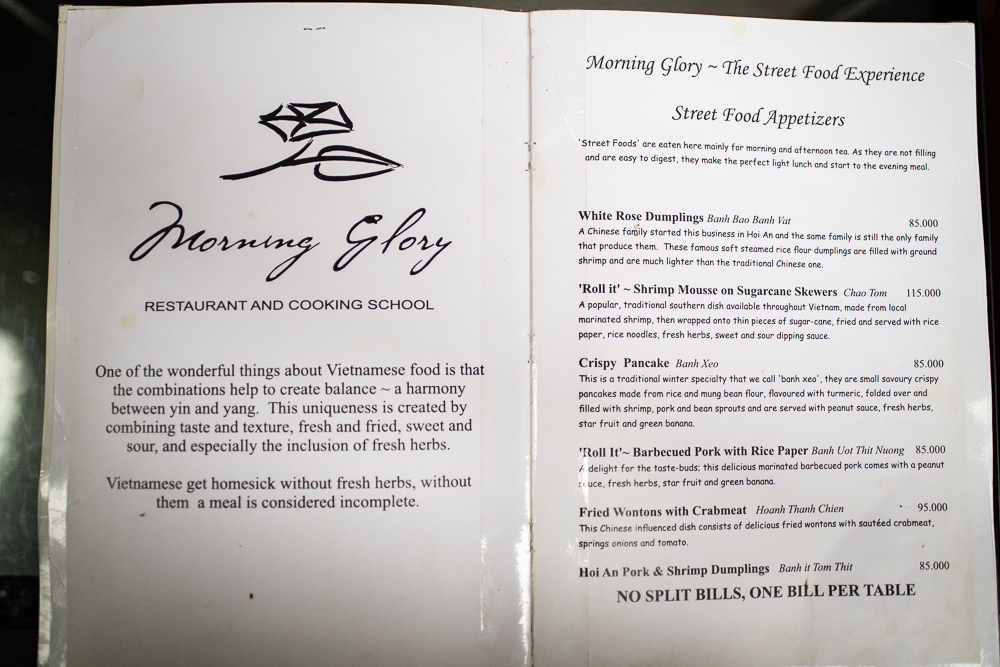 Morning Glory
RESTAURANT AND COOKING SCHOOL
One of the wonderful things about Vietnamese food is that
the combinations help to create balance ~ a harmony
between yin and yang. This uniqueness is created by
combining taste and texture, fresh and fried, sweet and
sour, and especially the inclusion of fresh herbs.
Vietnamese get homesick without fresh herbs, without
them a meal is considered incomplete.
Morning Glory ~ The Street Food Experience
Street Food Appetizers
'Street Foods' are eaten here mainly for morning and afternoon tea. As they are not filling
and are easy to digest, they make the perfect light lunch and start to the evening meal.
White Rose Dumplings Banh Bao Banh Vat 85.000
A Chinese family started this business in Hoi An and the same family is still the only family
that produce them. These famous soft steamed rice flour dumplings are filled with ground
shrimp and are much lighter than the traditional Chinese one.
'Roll it' ~ Shrimp Mousse on Sugarcane Skewers Chao Tom 115.000
A popular, traditional southern dish available throughout Vietnam, made from local
marinated shrimp, then wrapped onto thin pieces of sugar-cane, fried and served with rice
paper, rice noodles, fresh herbs, sweet and sour dipping sauce.
Crispy Pancake Banh Xeo 85.000
This is a traditional winter specialty that we call 'banh xeo', they are small savoury crispy
pancakes made from rice and mung bean flour, flavoured with turmeric, folded over and
filled with shrimp, pork and bean sprouts and are served with peanut sauce, fresh herbs,
star fruit and green banana.
'Roll It'~ Barbecued Pork with Rice Paper Banh Uot Thit Nuong 85.000
A delight for the taste-buds; this delicious marinated barbecued pork comes with a peanut
sauce, fresh herbs, star fruit and green banana.
Fried Wontons with Crabmeat Hoanh Thanh Chien 95.000
This Chinese influenced dish consists of delicious fried wontons with sautéed crabmeat,
springs onions and tomato.
Hoi An Pork & Shrimp Dumplings Banh it Tom Thit 85.000
NO SPLIT BILLS, ONE BILL PER TABLE